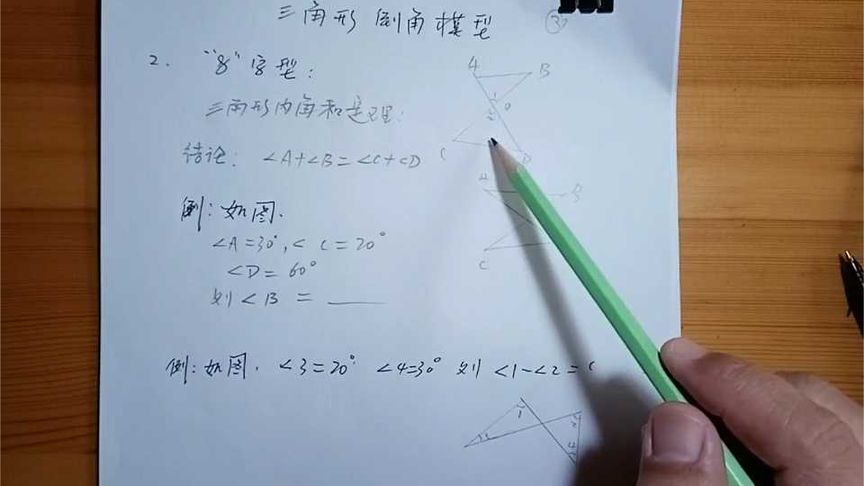 三角形 倒角模型
③
2. "8"字型:
三角形内角和定理:
结论: ∠A+∠B=∠C+∠D
例:如图.
∠A=30°,∠C=20°
∠D=60°
则∠B = ____
例:如图. ∠3=20° ∠4=30° 则 ∠1-∠2=
A B
1
2 O
C D
A B
C
1
2
4